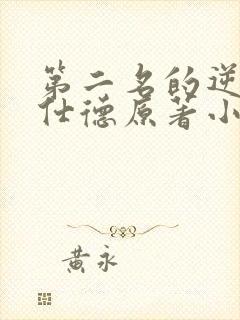 第二名的逆
仕德原著小
黄永